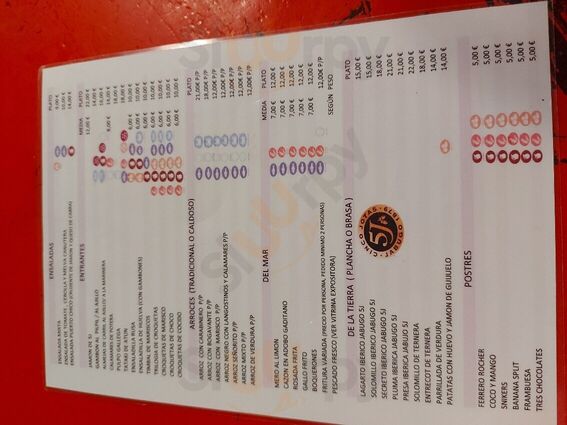 ENSALADAS
PLATO
ENSALADA MIXTA 9,00 €
ENSALADA DE TOMATE, CEBOLLA Y MELVA CANUTERA 10,00 €
ENSALADA PUERTO CHICO 14,00 €
ENTRANTES
MEDIA PLATO
JAMON DE 5J 12,00 € 22,00 €
GAMBON AL PILPIL / AL AJILLO 14,00 €
ALMEJAS DE CARRIL AL AJILLO A LA MARINERA 16,00 €
CALAMAR DE POTERA 14,00 €
PULPO GALLEGA 18,00 €
TARTAR DE ATUN 18,00 €
ENSALADILLA RUSA 6,00 € 10,00 €
ENSALADILLA DE MELVA (CON GAMBONES) 6,00 € 10,00 €
TIMBAL DE MARISCOS 6,00 € 10,00 €
TRILOGIA DE CROQUETAS 6,00 € 10,00 €
CROQUETAS DE MARISCO 6,00 € 10,00 €
CROQUETAS DE CHOCO 6,00 € 10,00 €
CROQUETAS DE COCIDO 6,00 € 10,00 €
ARROCES (TRADICIONAL O CALDOSO)
PLATO
ARROZ CON CARABINERO P/P 21,00€ P/P
ARROZ CON BOGAVANTE P/P 18,00€ P/P
ARROZ CON MARISCO P/P 12,00€ P/P
ARROZ NEGRO CON LANGOSTINOS Y CALAMARES P/P 12,00€ P/P
ARROZ SEÑORITO P/P 12,00€ P/P
ARROZ MIXTO P/P 12,00€ P/P
ARROZ DE VERDURA P/P 12,00€ P/P
DEL MAR
MEDIA PLATO
MERO AL LIMON 7,00 € 12,00 €
CAZON EN ADOBO GADITANO 7,00 € 12,00 €
ROSADA FRITA 7,00 € 12,00 €
GALLO FRITO 7,00 € 12,00 €
BOQUERONES 7,00 € 12,00 €
FRITURA VARIADA (PRECIO POR PERSONA, PEDIDO MINIMO 2 PERSONAS) 12,00€ P/P
PESCADO FRESCO (VER VITRINA EXPOSITORA) SEGÚN PESO
DE LA TIERRA ( PLANCHA O BRASA )
PLATO
LAGARTO IBERICO JABUGO 5J 15,00 €
SOLOMILLO IBERICO JABUGO 5J 15,00 €
SECRETO IBERICO JABUGO 5J 18,00 €
PLUMA IBERICO JABUGO 5J 21,00 €
PRESA IBERICO JABUGO 5J 21,00 €
SOLOMILLO DE TERNERA 22,00 €
ENTRECOT DE TERNERA 18,00 €
PARRILLADA DE VERDURA 14,00 €
PATATAS CON HUEVO Y JAMON DE GUIJUELO 14,00 €
CINCO JOTAS
5J
JABUGO 1879
POSTRES
FERRERO ROCHER 5,00 €
COCO Y MANGO 5,00 €
SNIKERS 5,00 €
BANANA SPLIT 5,00 €
FRAMBUESA 5,00 €
TRES CHOCOLATES 5,00 €